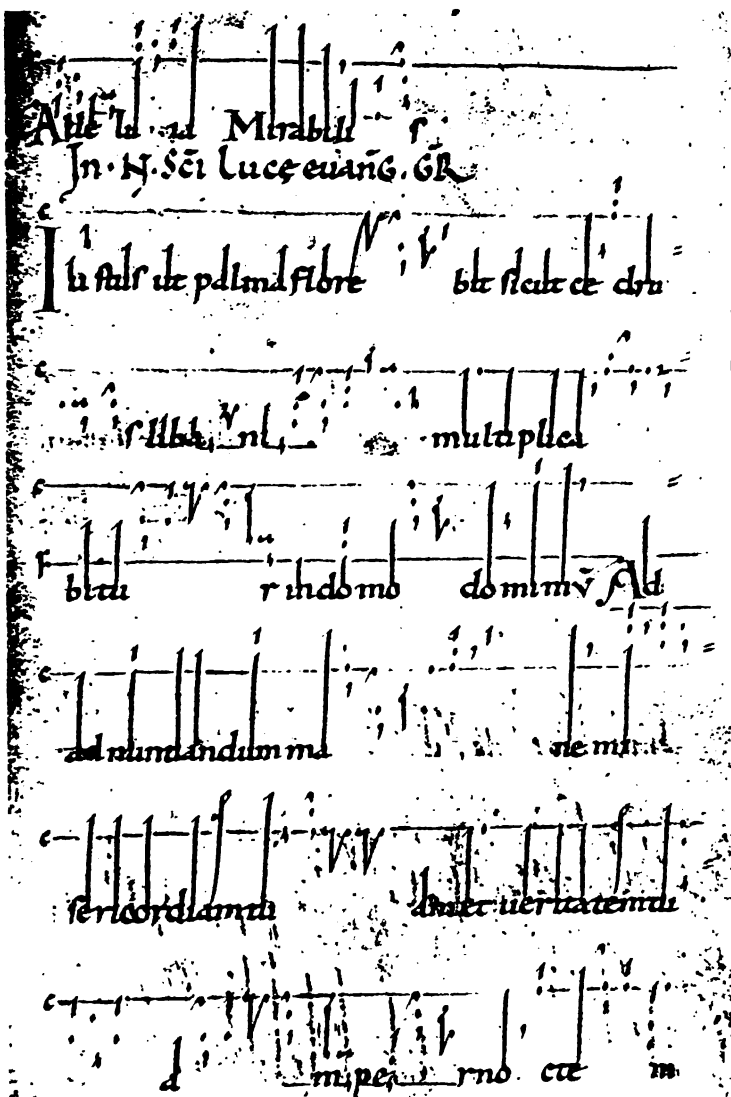 Alle lu ia Mirabili s
In. N. Sc̄i Lucę euan̄G. GR̄
Iustus ut palma flore bit sicut ce dru
s liba ni multiplica
bitu r in domo do mi mv̄ Ad
ad nuntiandum ma ne mi
sericordiam tu am et ueritatem tu
a m per no cte m